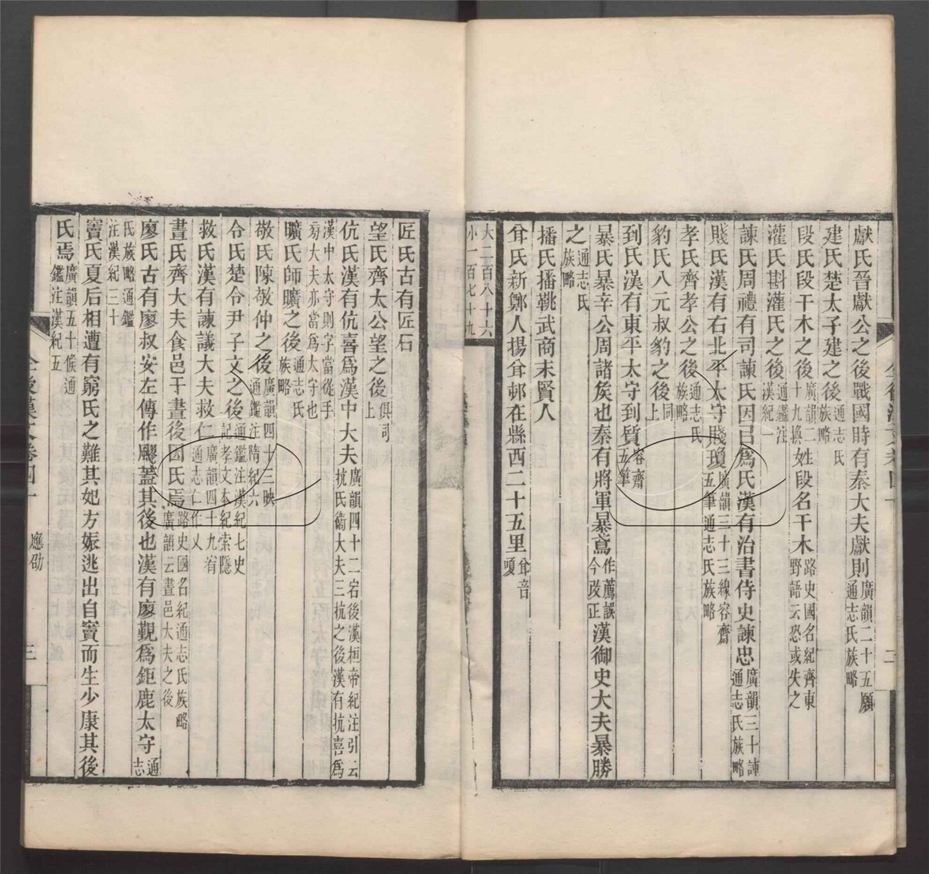 獻氏晉獻公之後戰國時有秦大夫獻則廣韻二十五願通志氏族略
建氏楚太子建之後通志氏族略
段氏段干木之後廣韻二十九換姓段名干木路史國名紀齊東野語云恐或失之
灌氏斟灌氏之後通鑑注漢紀一
諫氏周禮有司諫氏因官爲氏漢有治書侍史諫忠廣韻三十諫通志氏族略
賤氏漢有右北平太守賤瓊廣韻三十三線容齋五筆通志氏族略
孝氏齊孝公之後通志氏族略
豹氏八元叔豹之後同上
到氏漢有東平太守到質容齋五筆
暴氏暴辛公周諸矦也秦有將軍暴鳶作薦誤今改正漢御史大夫暴勝
之通志氏族略
播氏播鞉武商末賢人
㑽氏新鄭人楊㑽邨在縣西二十五里㑽音頃
大二百八十六
小一百七十九
全後漢文卷四十
二
匠氏古有匠石
望氏齊太公望之後俱同上
伉氏漢有伉喜爲漢中大夫廣韻四十二宕後漢桓帝紀注引云抗氏衞大夫三抗之後漢有抗喜爲
漢中太守則字當從手旁大夫亦當爲太守也
曠氏師曠之後通志氏族略
敬氏陳敬仲之後廣韻四十三映通鑑注隋紀六
令氏楚令尹子文之後通鑑注漢紀七史記孝文本紀索隱
救氏漢有諫議大夫救仁廣韻四十九宥通志仁作乂
晝氏齊大夫食邑于晝後因氏焉路史國名紀通志氏族略廣韻云晝邑大夫之後
廖氏古有廖叔安左傳作飂蓋其後也漢有廖觀爲鉅鹿太守通志
氏族略通鑑注漢紀三十
竇氏夏后相遭有窮氏之難其妃方娠逃出自竇而生少康其後
氏焉廣韻五十候通鑑注漢紀五
全後漢文卷四十
應劭
三